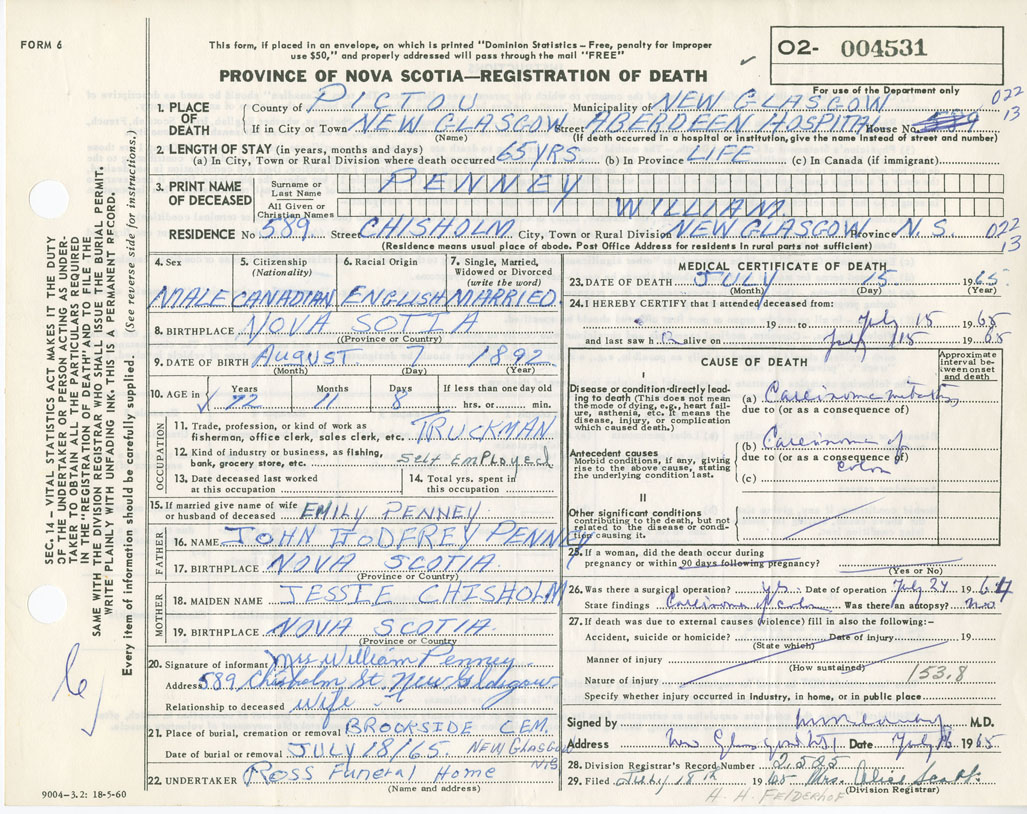 FORM 6
This form, if placed in an envelope, on which is printed "Dominion Statistics – Free, penalty for improper
use $50," and properly addressed will pass through the mail "FREE"
O2- 004531
PROVINCE OF NOVA SCOTIA—REGISTRATION OF DEATH
For use of the Department only
1. PLACE OF DEATH
County of PICTOU Municipality of NEW GLASGOW 022
If in City or Town NEW GLASGOW Street ABERDEEN HOSPITAL House No. 589 13
(Name) (If death occurred in a hospital or institution, give the name instead of street and number)
2. LENGTH OF STAY (in years, months and days)
(a) In City, Town or Rural Division where death occurred 65 YRS. (b) In Province LIFE (c) In Canada (if immigrant)
3. PRINT NAME OF DECEASED
Surname or Last Name PENNEY
All Given or Christian Names WILLIAM
RESIDENCE No. 589 Street CHISHOLM City, Town or Rural Division NEW GLASGOW Province N.S. 022
(Residence means usual place of abode. Post Office Address for residents in rural parts not sufficient) 13
4. Sex
MALE
5. Citizenship (Nationality)
CANADIAN
6. Racial Origin
ENGLISH
7. Single, Married, Widowed or Divorced (write the word)
MARRIED
8. BIRTHPLACE NOVA SOTIA
(Province or Country)
9. DATE OF BIRTH AUGUST 7 1892
(Month) (Day) (Year)
10. AGE in Years 72 Months 11 Days 8 If less than one day old hrs. or min.
OCCUPATION
11. Trade, profession, or kind of work as
fisherman, office clerk, sales clerk, etc. TRUCKMAN
12. Kind of industry or business, as fishing,
bank, grocery store, etc. Self Employed
13. Date deceased last worked
at this occupation
14. Total yrs. spent in
this occupation
15. If married give name of wife
or husband of deceased EMILY PENNEY
FATHER
16. NAME JOHN HODFREY PENNEY
17. BIRTHPLACE NOVA SCOTIA
(Province or Country)
MOTHER
18. MAIDEN NAME JESSIE CHISHOLM
19. BIRTHPLACE NOVA SCOTIA.
(Province or Country)
20. Signature of informant Mrs William Penney
Address 589 Chisholm St. New Glasgow
Relationship to deceased wife.
21. Place of burial, cremation or removal BROOKSIDE CEM.
Date of burial or removal JULY 18/65. NEW GLASGOW N.S.
22. UNDERTAKER Ross Funeral Home
(Name and address)
MEDICAL CERTIFICATE OF DEATH
23. DATE OF DEATH JULY 15 1965
(Month) (Day) (Year)
24. I HEREBY CERTIFY that I attended deceased from:
19 to July 15 1965
and last saw h alive on July 15 1965
CAUSE OF DEATH
Approximate interval between onset and death
I
Disease or condition directly leading to death (This does not mean the mode of dying, e.g., heart failure, asthenia, etc. It means the disease, injury, or complication which caused death.)
(a) Carcinoma
due to (or as a consequence of)
Antecedent causes
Morbid conditions, if any, giving rise to the above cause, stating the underlying condition last.
(b) Carcinoma of
due to (or as a consequence of)
colon
(c)
II
Other significant conditions
contributing to the death, but not related to the disease or condition causing it.
25. If a woman, did the death occur during
pregnancy or within 90 days following pregnancy?
(Yes or No)
26. Was there a surgical operation? yes Date of operation July 24 1964
State findings Carcinoma of colon Was there an autopsy? no
27. If death was due to external causes (violence) fill in also the following:–
Accident, suicide or homicide? Date of injury 19
(State which)
Manner of injury
(How sustained)
Nature of injury 153.8
Specify whether injury occurred in industry, in home, or in public place
Signed by M.D.
Address New Glasgow Date July 1965
28. Division Registrar's Record Number 2585
29. Filed July 18th 1965 Mrs. Alice Scott
(Division Registrar)
H. H. FELDERHOF
SEC. 14 – VITAL STATISTICS ACT MAKES IT THE DUTY
OF THE UNDERTAKER OR PERSON ACTING AS UNDER-
TAKER TO OBTAIN ALL THE PARTICULARS REQUIRED
IN THE "REGISTRATION OF DEATH" AND TO FILE THE
SAME WITH THE DIVISION REGISTRAR WHO SHALL ISSUE THE BURIAL PERMIT.
WRITE PLAINLY WITH UNFADING INK. THIS IS A PERMANENT RECORD.
Every item of information should be carefully supplied. (See reverse side for instructions.)
9004–3.2: 18-5-60